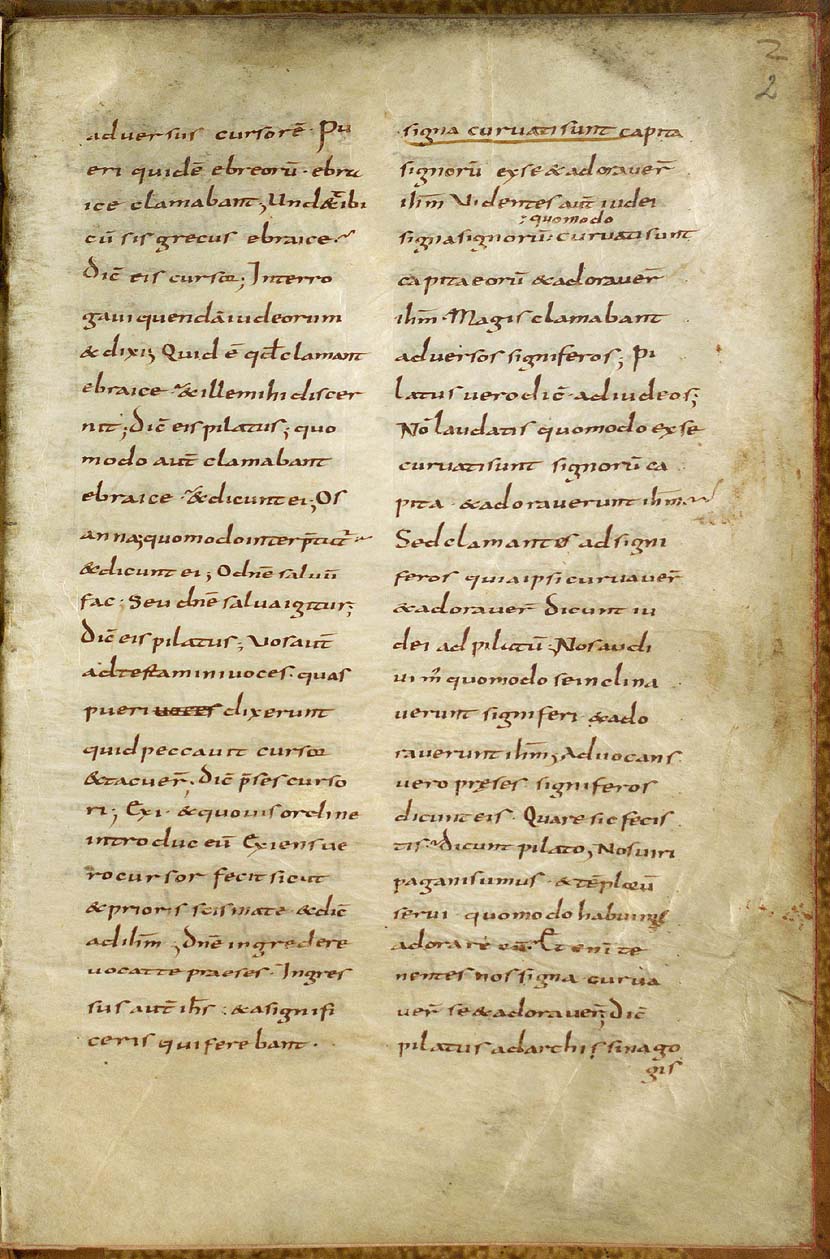 2
2
adversus cursorē· Pu
eri quidē ebreorū· ebra
ice clamabant; Und& tibi
cū sis grecus ebraice·
Dic̄ eis cursor; Interro
gavi quendā iudeorum
& dixi; Quid ē qđ clamant
ebraice & ille mihi discer
nit; Dic̄ eis pilatus; quo
modo aut̄ clamabant
ebraice & dicunt ei; Os
anna; quomodo interp̄tat̄
& dicunt ei; O dn̄e salvū
fac· Seu dn̄e salva igitur;
Dic̄ eis pilatus; Vos aut̄
adtestamini voces· quas
pueri voces dixerunt
quid peccavit cursor
& tacuer̄; Dic̄ p̄ses curso
ri; Exi· & quovis ordine
introduc eū Exiens ve
ro cursor fecit sicut
& prioris scismate & dic̄
ad ih̄m; dn̄e ingredere
vocat te praeses· Ingres
sus aut̄ ih̄s; & a signifi
ceris qui ferebant·
signa curvati sunt capita
signorū ex se & adoraver̄
ih̄m Videntes aut̄ iudei
: quomodo
signa signorū: curvati sunt
capita eorū & adoraver̄
ih̄m· Magis clamabant
adversos signiferos; Pi
latus vero dic̄· ad iudeos;
Nō laudatis quomodo ex se
curvati sunt signorū ca
pita· & adoraverunt ih̄m
Sed clamantes ad signi
feros quia ipsi curvaver̄
& adoraver̄ Dicunt iu
dei ad pilatū; Nos audi
vi m̄ quomodo se inclina
verunt signiferi· & ado
raverunt ih̄m; Advocans
vero preses signiferos
dicunt eis· Quare sic fecis
tis Dicunt pilato; Nos viri
pagani sumus· & tēplorū
servi· quomodo habuimus
adorare Et enī te
nentes nos signa curva
ver̄ se & adoraver̄; Dic̄
pilatus ad archissinago
gis